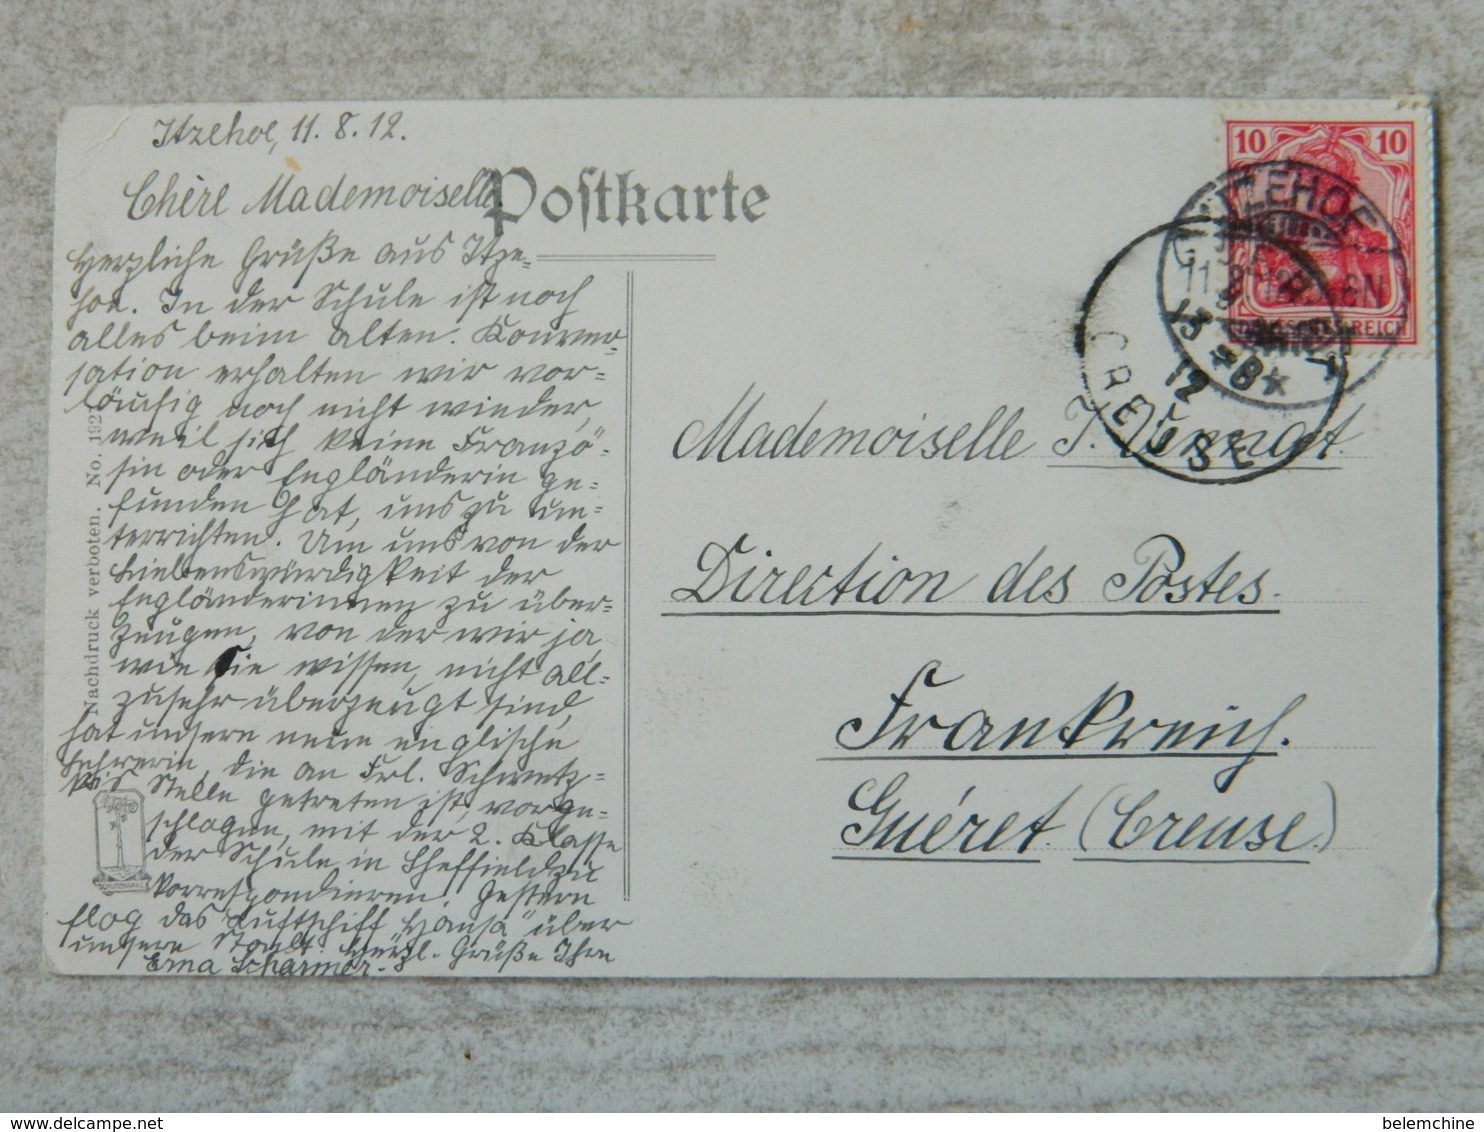 Itzehoe, 11. 8. 12.
Chère Mademoiselle
Postkarte
Herzliche Grüße aus Itze-
hoe. In der Schule ist noch
alles beim alten. Konver-
sation erhalten wir vor-
läufig noch nicht wieder,
weil sich keine Franzö-
sin oder Engländerin ge-
funden hat, uns zu un-
terrichten. Um uns von der
Liebenswürdigkeit der
Engländerinnen zu über-
zeugen, von der wir ja,
wie Sie wissen, nicht all-
zusehr überzeugt sind,
hat unsere neue englische
Lehrerin, die an Frl. Schmetz-
Stelle getreten ist, vorge-
schlagen, mit der 2. Klasse
der Schule in Sheffield zu
korrespondieren. Gestern
flog das Luftschiff „Hansa" über
unsere Stadt. Herzl. Grüße Ihre
Erna Scharmer.
Nachdruck verboten. No. 192
10 10
DEUTSCHES REICH
ITZEHOE
11.8.12 6-7N
*B*
13
8
12
CREUSE
Mademoiselle J.
Direction des Postes.
Frankreich.
Guéret (Creuse.)
delcampe.net
belemchine